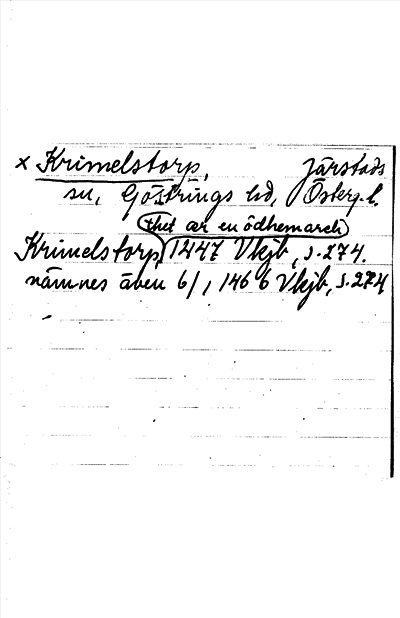 x Krimelstorp, Järstads
sn, Göstrings hd, Österg. l.
thet ær en ödhemarch
Krimelstorp, 1447 Vkjb, s. 274.
nämnes även 6/1 1466 Vkjb, s. 274